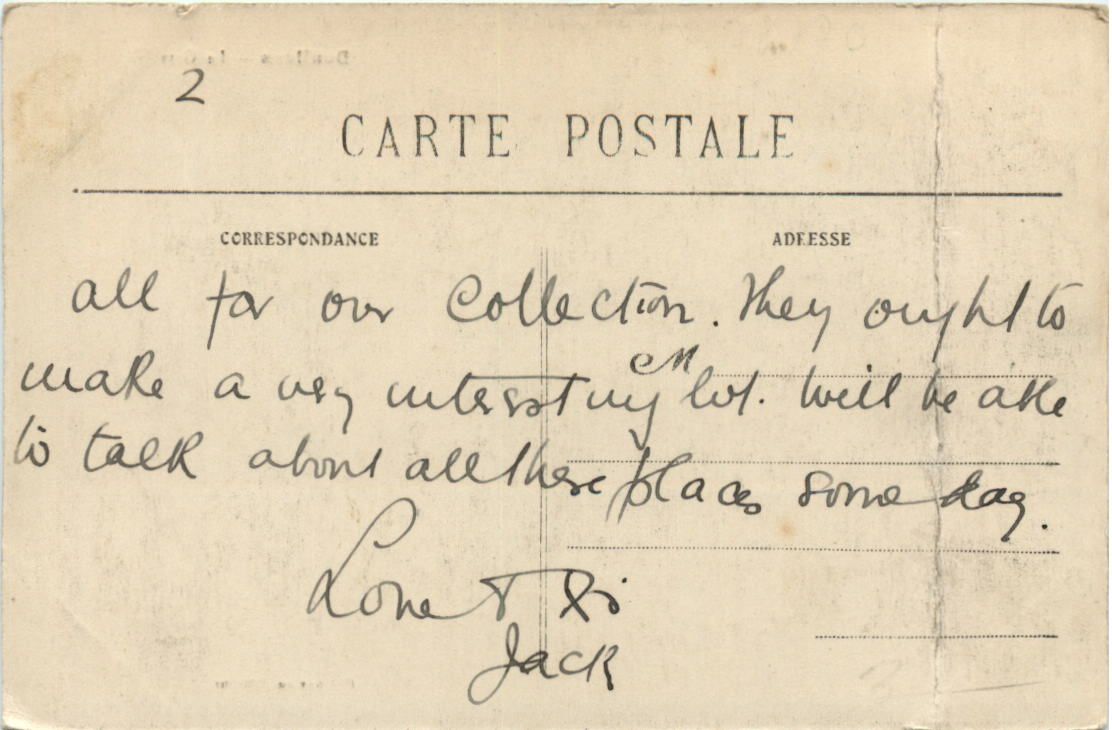 2
CARTE POSTALE
CORRESPONDANCE
ADRESSE
all for our Collection. They ought to
make a very interesting lot. Will be able
to talk about all these places some day.
Love &
Jack